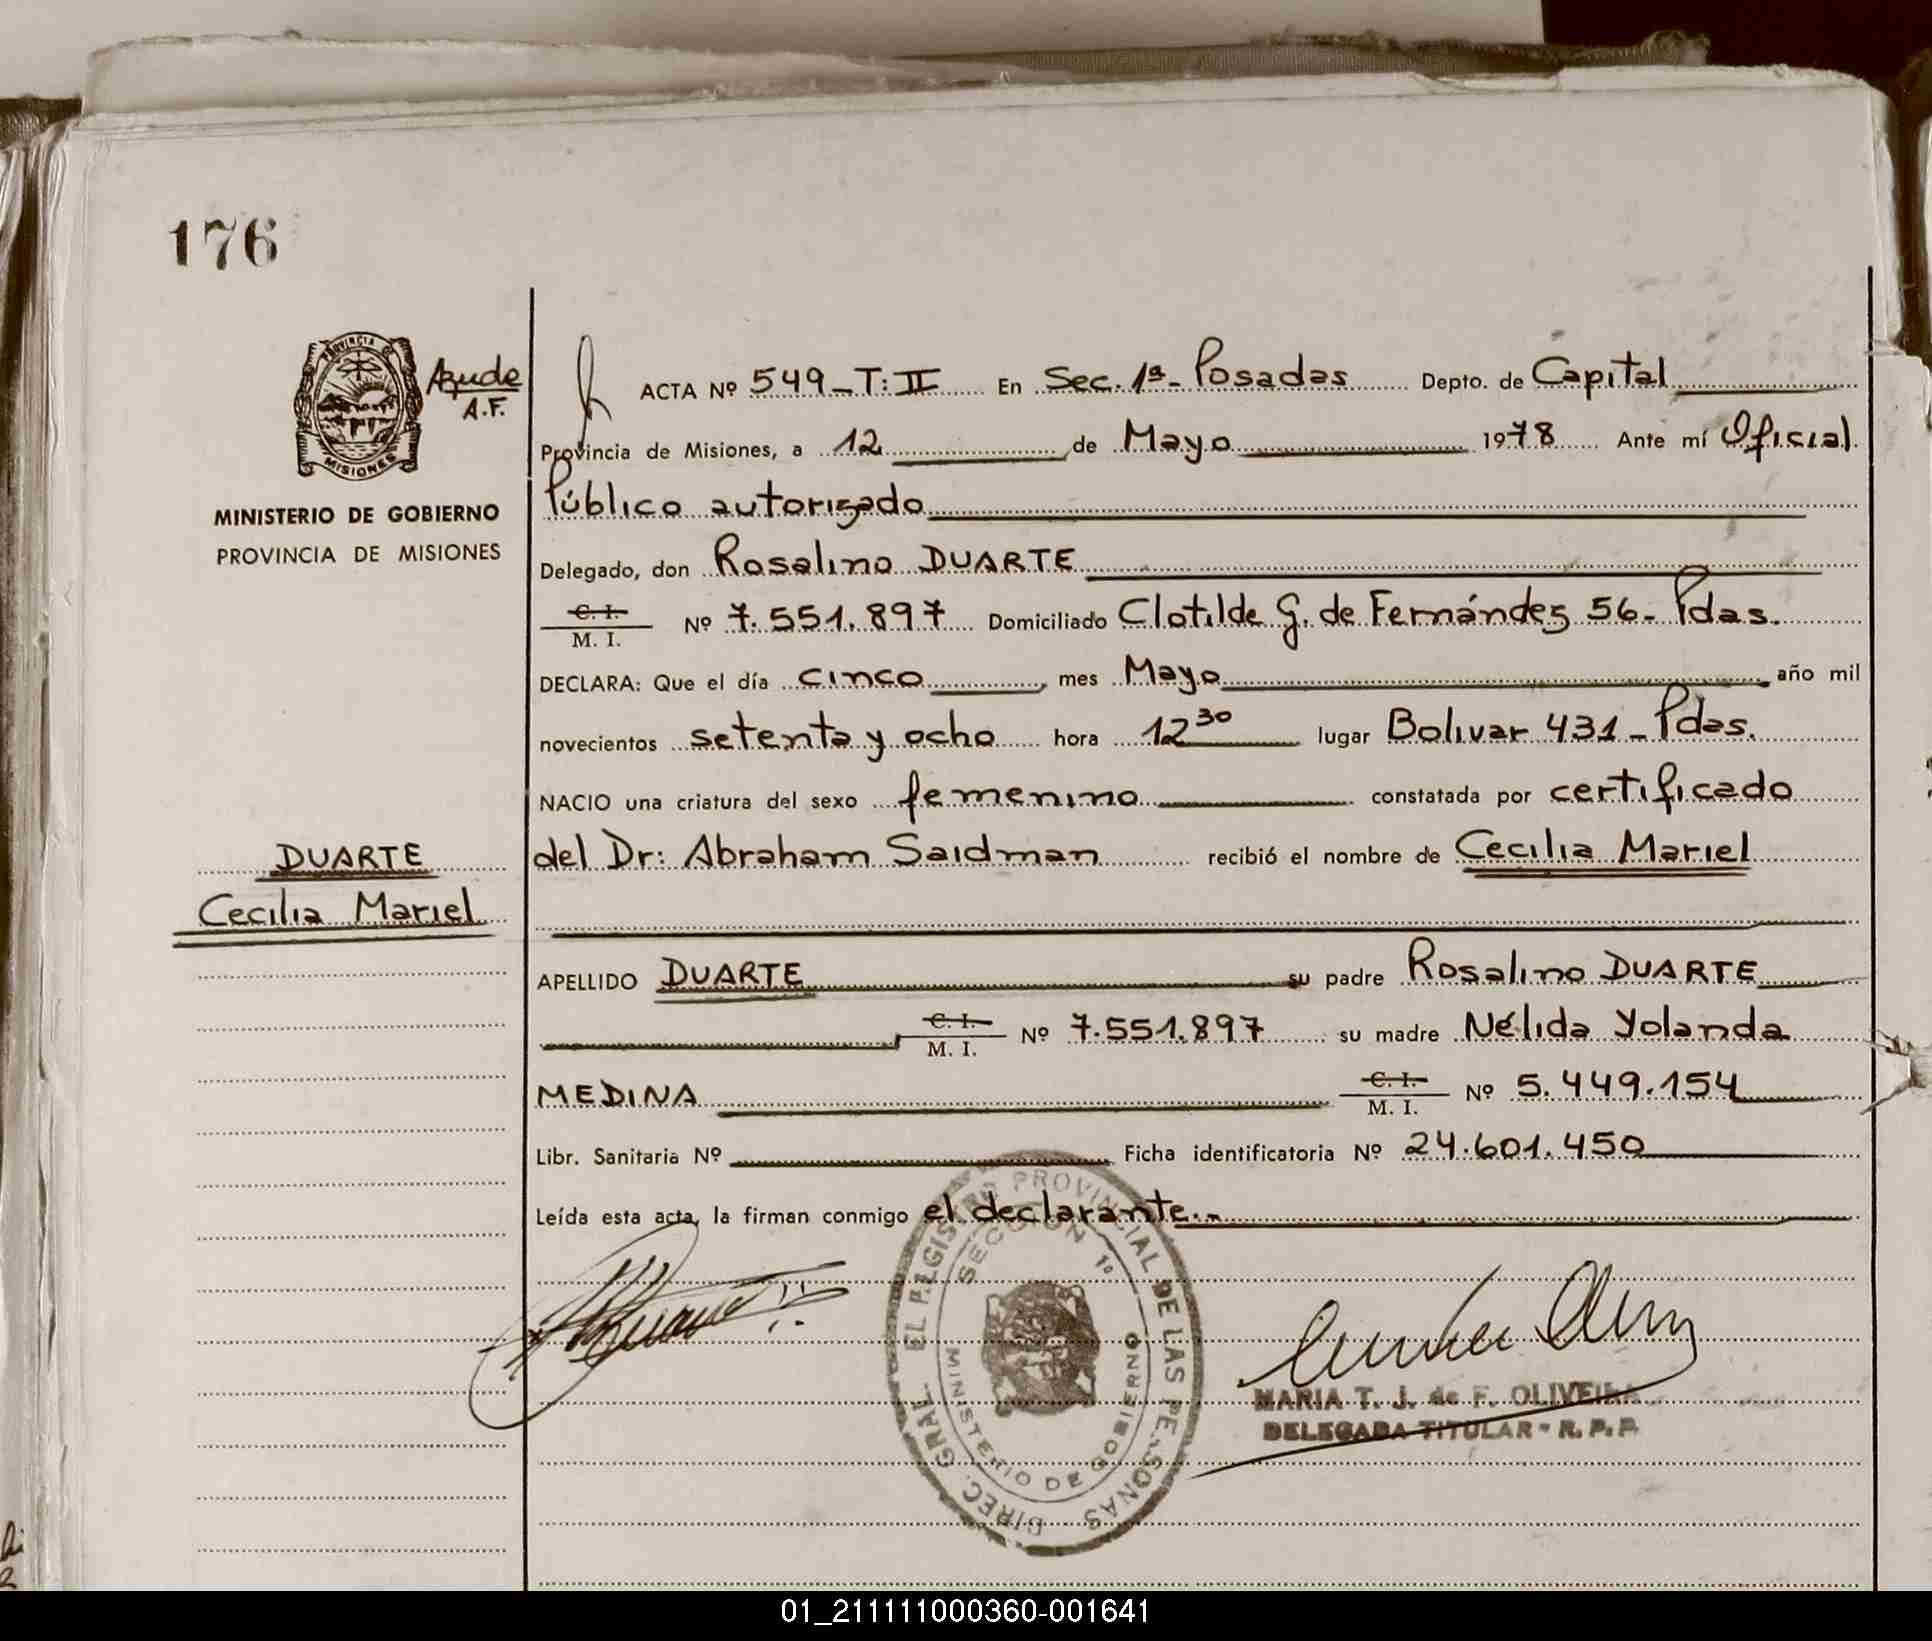 176
PROVINCIA DE
MISIONES
Ayude
A.F.
MINISTERIO DE GOBIERNO
PROVINCIA DE MISIONES
ACTA Nº 549_T:II En Sec. 1ª_ Posadas Depto. de Capital
Provincia de Misiones, a 12 de Mayo 1978 Ante mí Oficial
Público autorizado
Delegado, don Rosalino DUARTE
C. I.
M. I. Nº 7.551.897 Domiciliado Clotilde G. de Fernández 56_ Pdas.
DECLARA: Que el día cinco mes Mayo año mil
novecientos setenta y ocho hora 12³⁰ lugar Bolivar 431_ Pdas.
NACIO una criatura del sexo femenino constatada por certificado
del Dr: Abraham Saidman recibió el nombre de Cecilia Mariel
DUARTE
Cecilia Mariel
APELLIDO DUARTE su padre Rosalino DUARTE
C. I.
M. I. Nº 7.551.897 su madre Nélida Yolanda
MEDINA C. I.
M. I. Nº 5.449.154
Libr. Sanitaria Nº Ficha identificatoria Nº 24.601.450
Leída esta acta, la firman conmigo el declarante._
DIREC. GRAL. EL REGISTRO PROVINCIAL DE LAS PERSONAS
SECCION 1º
MINISTERIO DE GOBIERNO
MARIA T. J. de F. OLIVEIRA
DELEGADA TITULAR - R. P. P.
01_211111000360-001641